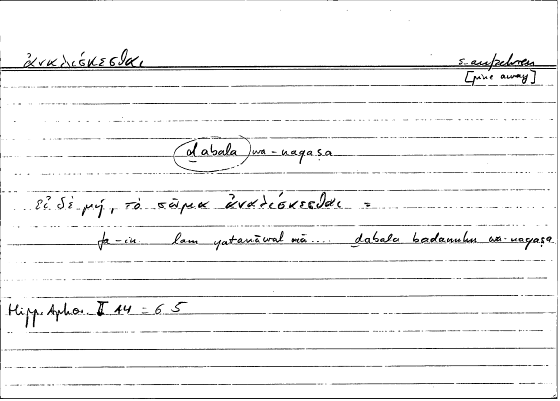 ἀναλίσκεσθαι s. aufzehren
[pine away]
dabala wa-naqaṣa
εἰ δὲ μή, τὸ σῶμα ἀναλίσκεσθαι =
fa-in lam yatanāwal mā.... dabala badanuhu wa-naqaṣa
Hipp. Aphor. I 14 = 6 5